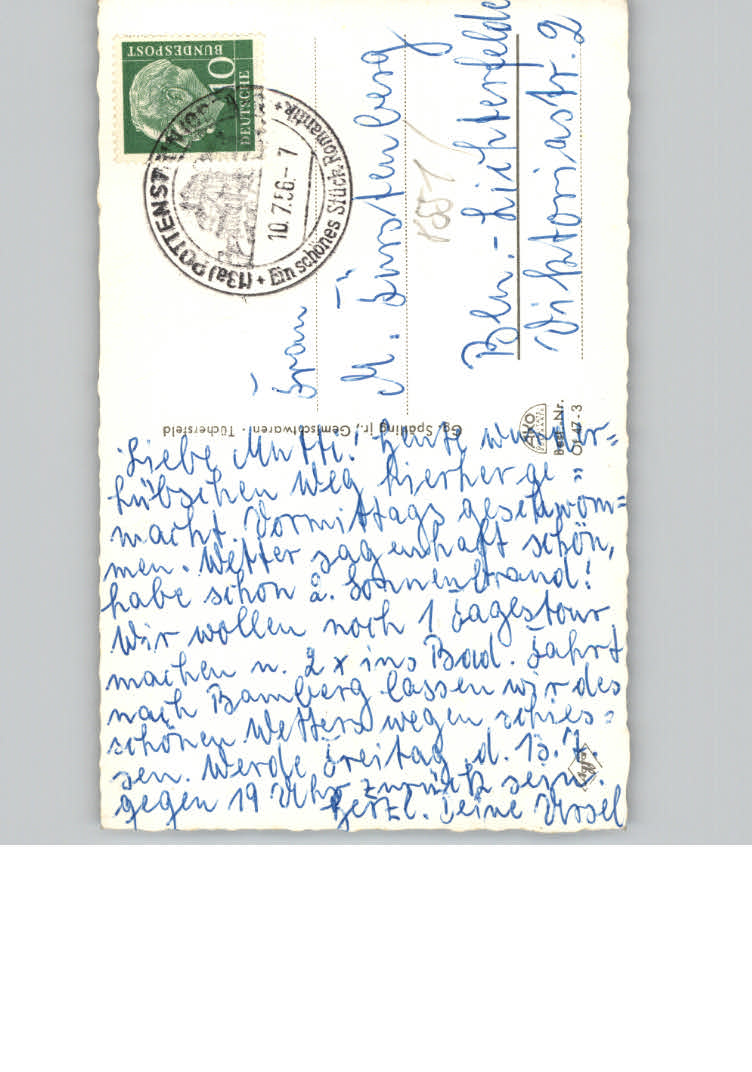 Liebe Mutti! Heute wunder=
hübschen Weg hierher ge=
macht. Vormittags geschwom=
men. Wetter sagenhaft schön,
habe schon 2. Sonnenbrand!
Wir wollen noch 1 Tagestour
machen u. 2 x ins Bad. Fahrt
nach Bamberg lassen wir des
schönen Wetters wegen schies=
sen. Werde Freitag d. 13.7.
gegen 19 Uhr zurück sein.
Herzl. Deine Ussel
Frau
M. Fürstenberg
Bln.-Lichterfelde
Viktoriastr. 2
DEUTSCHE
BUNDESPOST
10
(13a) POTTENSTEIN
10.7.56.-7
+ Ein schönes Stück Romantik +
Gg. Spärling jr., Gemischtwaren - Tüchersfeld
AKO
Best.-Nr.
Of 47-3
Agfa